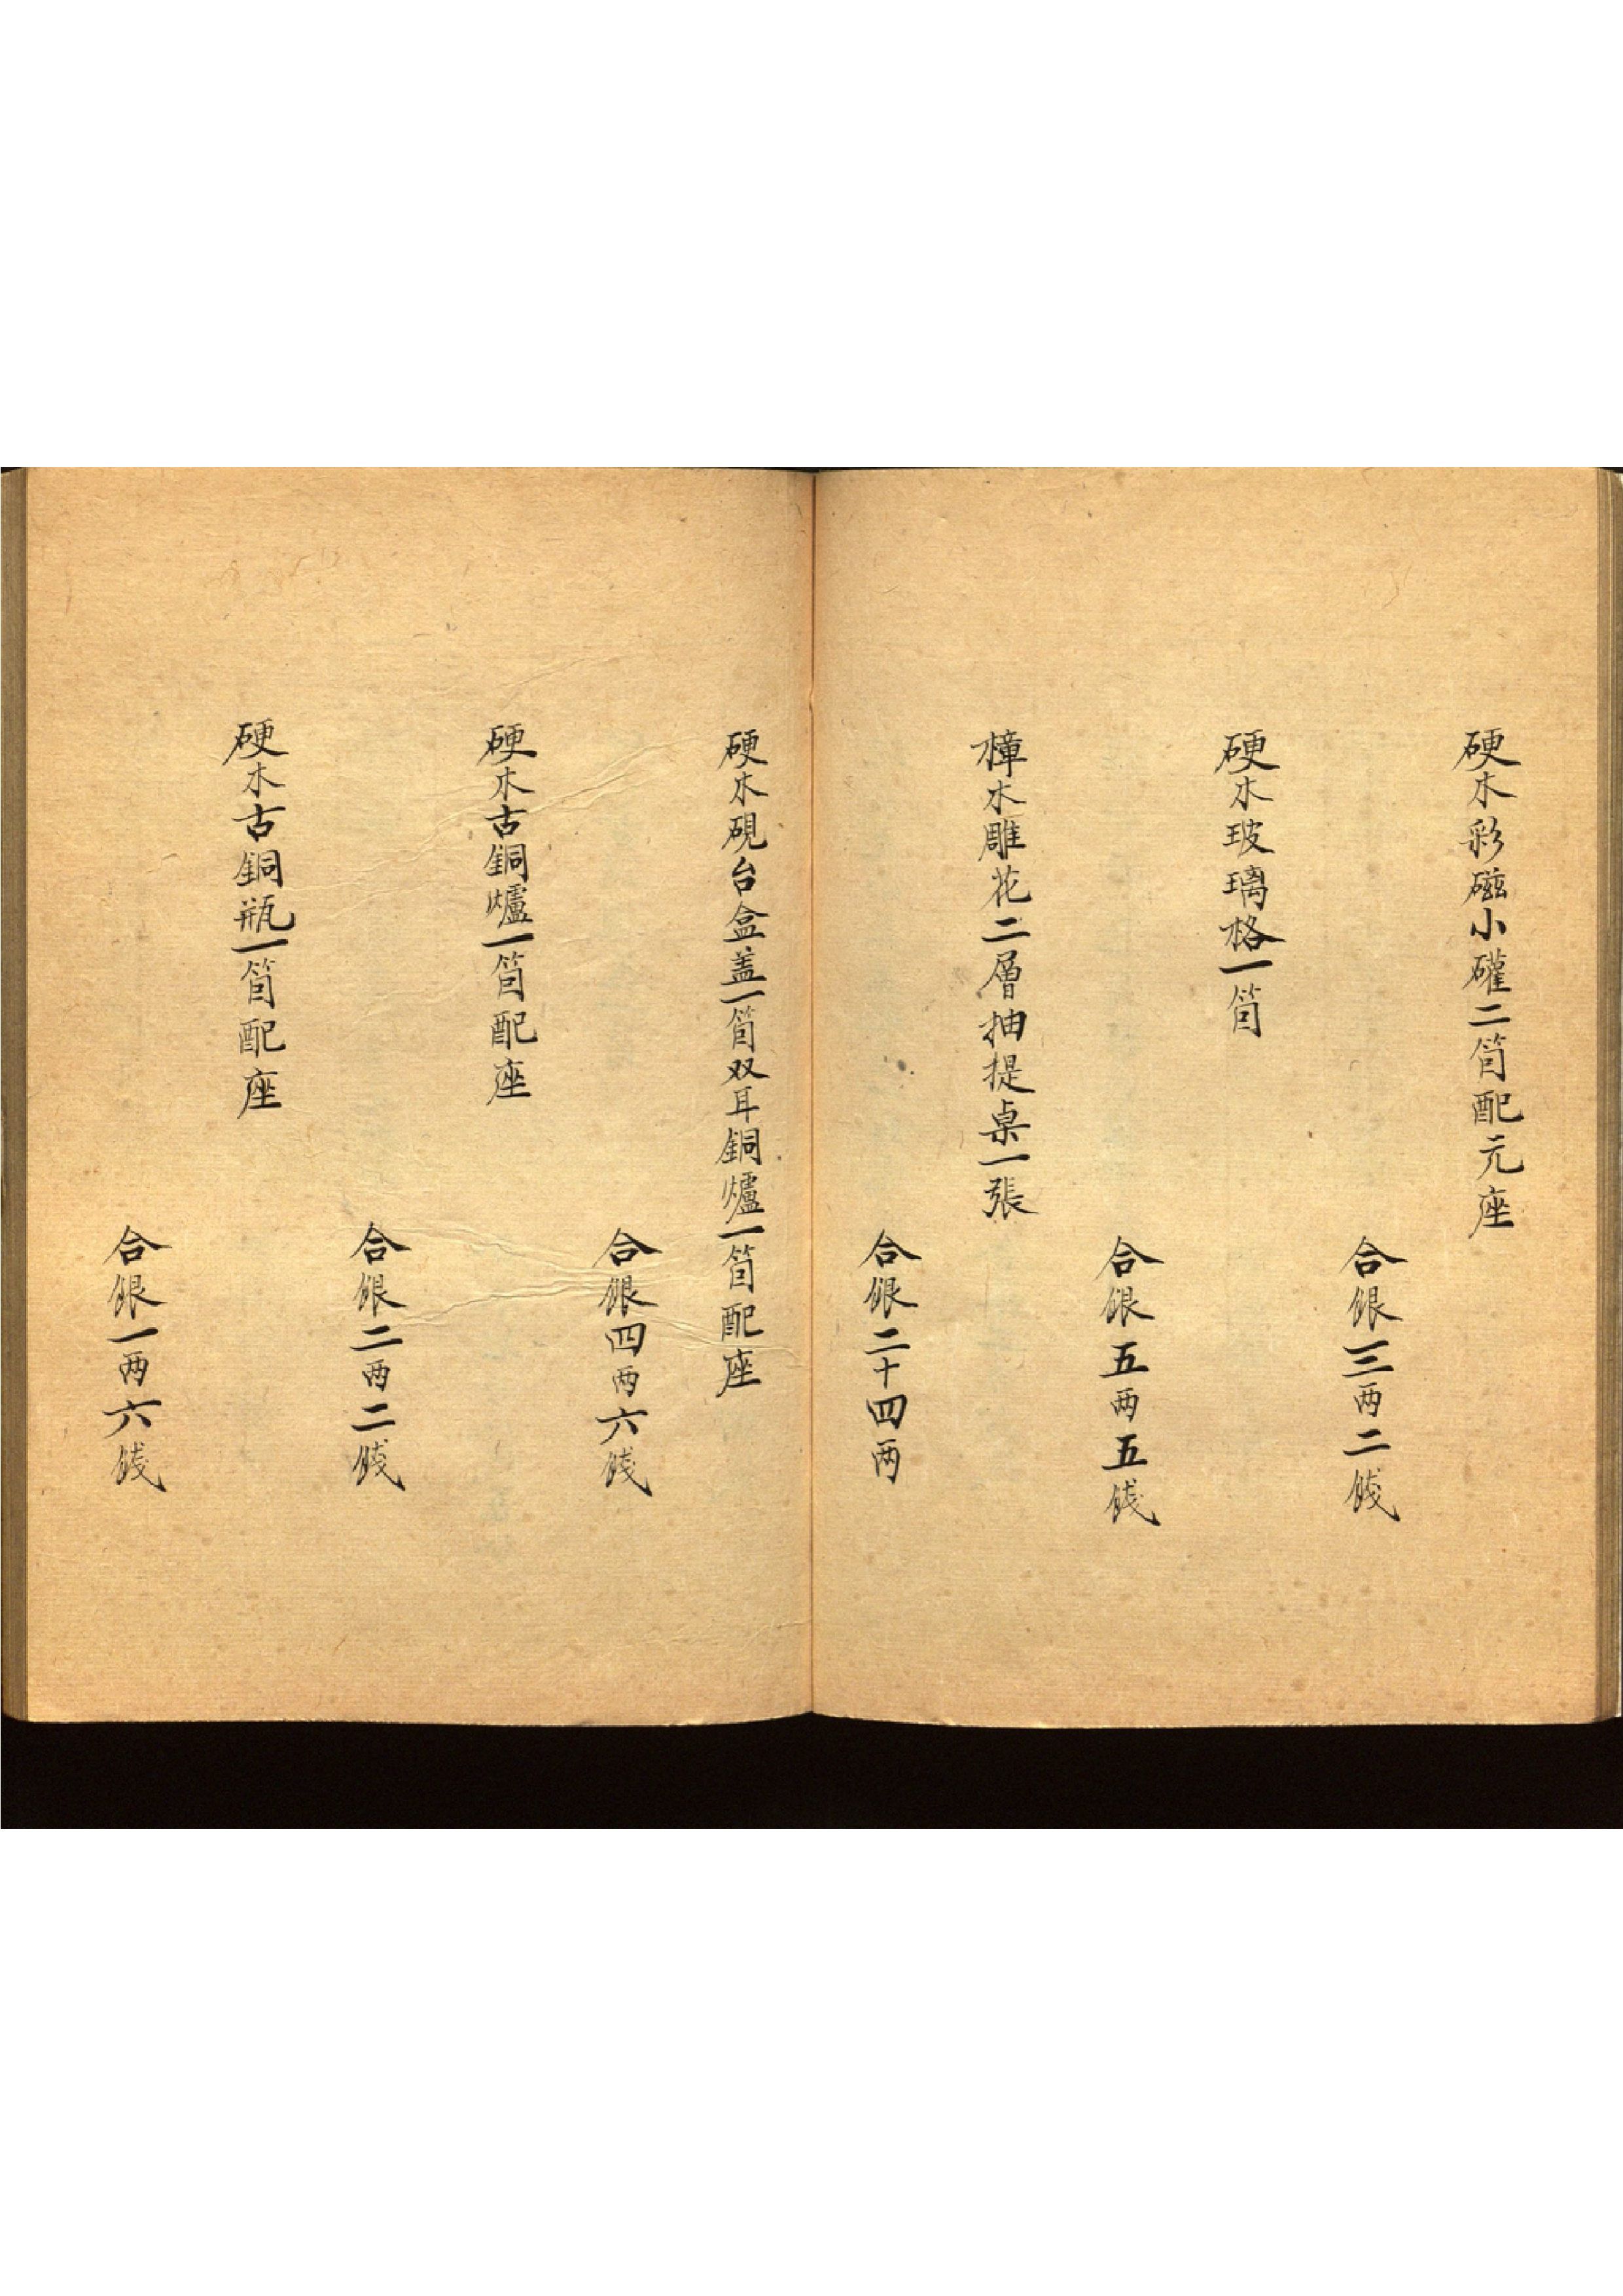 硬木彩磁小礶二箇配元座
合銀三两二錢
硬木玻璃格一箇
合銀五两五錢
樟木雕花二層抽提桌一張
合銀二十四两
硬木硯台盒盖一箇双耳銅爐一箇配座
合銀四两六錢
硬木古銅爐一箇配座
合銀二两二錢
硬木古銅瓶一箇配座
合銀一两六錢